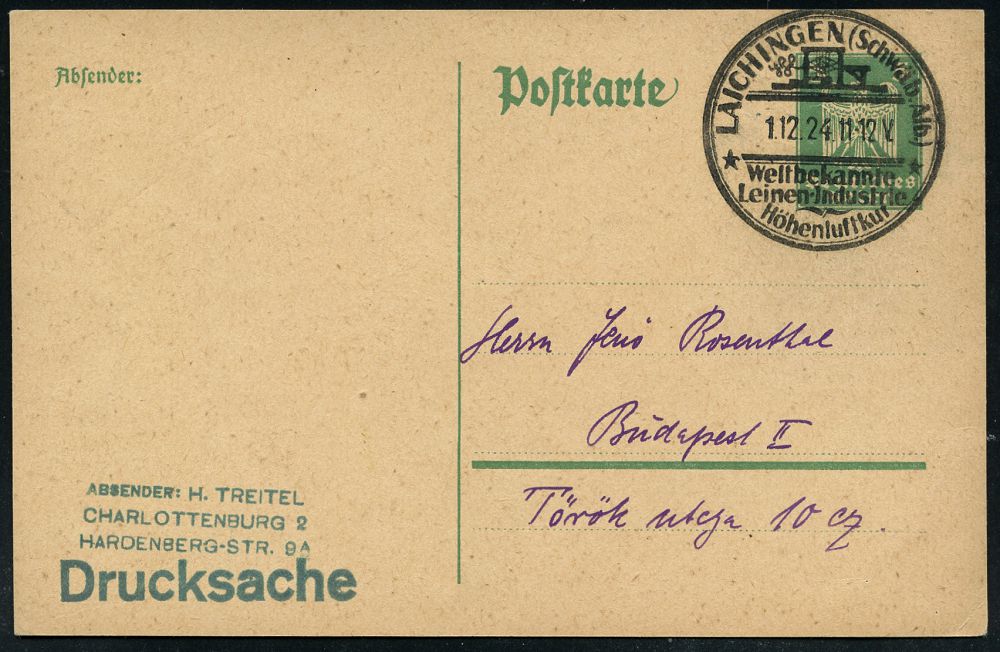 Absender:
Postkarte
LAICHINGEN (Schwäb. Alb)
1.12.24.11-12 V.
Weltbekannte
Leinen-Industrie
Höhenluftkur
Herrn Jenö Rosenthal
Budapest II
Török utcza 10 cz
ABSENDER: H. TREITEL
CHARLOTTENBURG 2
HARDENBERG-STR. 9A
Drucksache